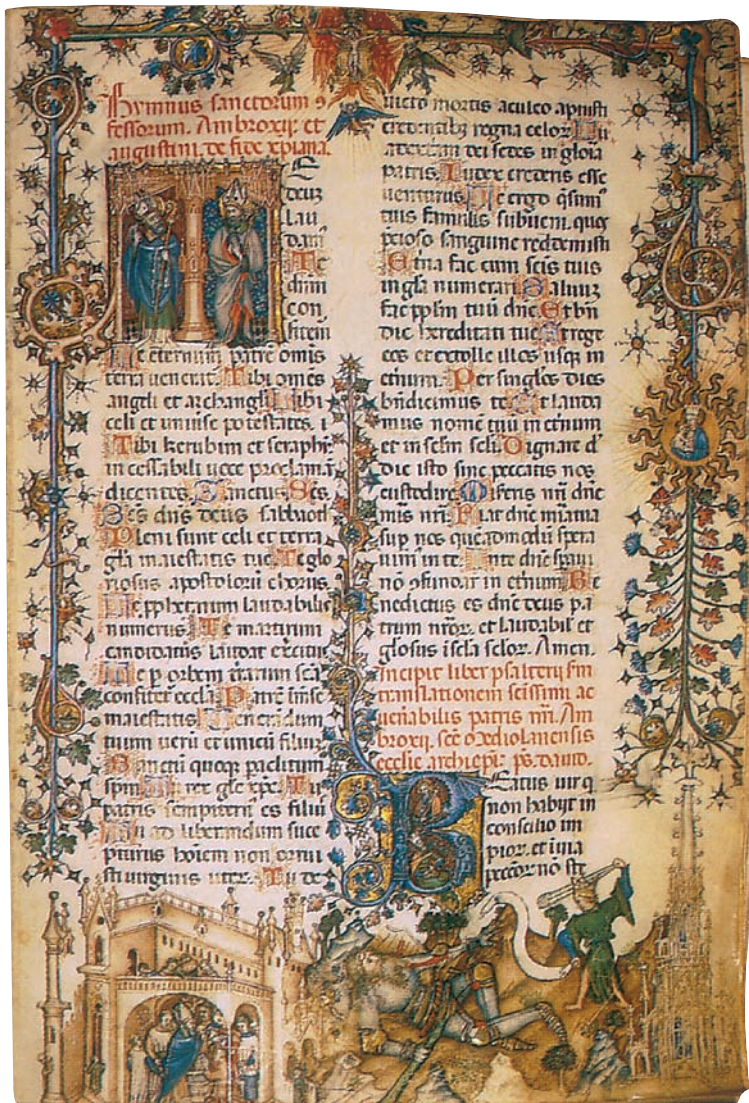 Hymnus sanctorum 9
fessorum. Ambroxii et
augustini. de fide xpiana.
Te
deuz
lau
dam
Te
dnm
con
fitem
Te eternum patrē omīs
terra uenerat. Tibi omēs
angeli et archangli. Tibi
celi et uniuse potestates.
Tibi kerubim et seraphī
incessabili uoce proclamāt
dicentes. Sanctus. Scs.
Scs dns deus sabbaoth
Pleni sunt celi et terra
gła maiestatis tue. Te glo
riosus apostolorū chorus.
Te pphetarum laudabilis
numerus. Te martirum
candidatus laudat exercitus
Te p orbem terrarum scā
confitet ecclā. Patrē īmēse
maiestatis. Venerādum
tuum uerū et unicū filium
Sanctū quoqz paclitum
spm. Tu rex gle xpe. Tu
patris sempiternus es filiū
Tu ad liberandum susce
pturus hoīem non orrui
sti uirginis uter. Tu de
uicto mortis aculeo apuisti
credentibz regna celor. Tu
ad dexteram dei sedes in gloia
patris. Iudex crederis esse
uenturus. Te ergo qsim
tuis famulis subueni. quos
pcioso sanguine redemisti
Etna fac cum scis tuis
in gla numerari. Saluuz
fac pplm tuū dne. Et bn
dic hereditati tue. Et rege
eos et extolle illos usqz in
etnum. Per singlos dies
bndicimus te. Et lauda
mus nomē tuū in etnum
et in sclm scli. Dignare d
die isto sine peccatis nos
custodire. Miseris nri dne
mis nri. Fiat dne mia tua
sup nos quēadmodū spera
uim in te. In te dne spaui
nō 9fundar in etnum. Be
nedictus es dne deus pa
trum nror. et laudabil et
glosus i scla sclor. Amen.
Incipit liber psalterii sm
translationem scissimi ac
uenabilis patris nri. Am
broxii. scē mediolanensis
ecclie archiepi. ps. dauid.
Beatus uir q
non habiit in
consilio im
pior. et i uia
peccor nō ste